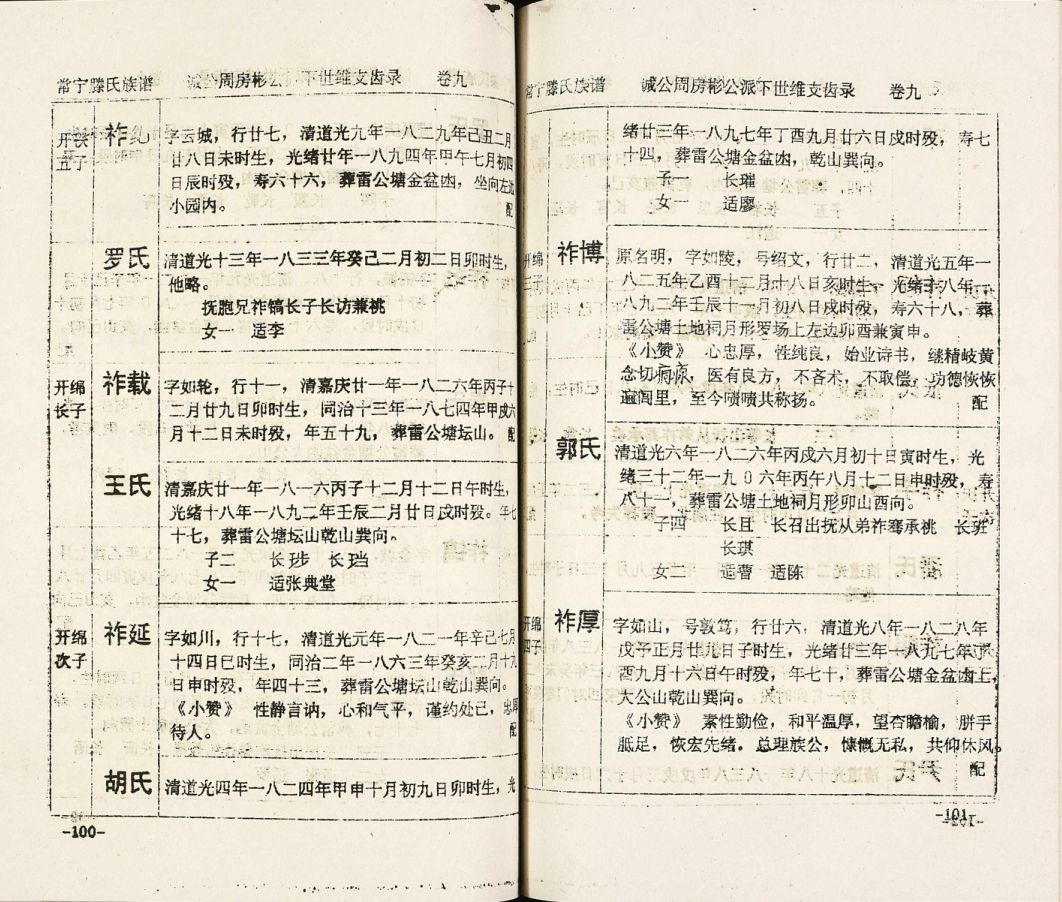 常宁滕氏族谱 诚公周房彬公 下世维支齿录 卷九
五子
字云城，行廿七，清道光九年一八二九年己丑二月
廿八日未时生，光绪廿年一八九四年甲午七月初四
日辰时殁，寿六十六，葬雷公塘金盆凼，坐向左边
小园内。 配
罗氏 清道光十三年一八三三年癸己二月初二日卯时生，
他略。
抚胞兄祚镐长子长访兼祧
女一 适李
开绵长子 祚载 字如轮，行十一，清嘉庆廿一年一八二六年丙子十
二月廿九日卯时生，同治十三年一八七四年甲戍六
月十二日未时殁，年五十九，葬雷公塘坛山。 配
王氏 清嘉庆廿一年一八一六丙子十二月十二日午时生，
光绪十八年一八九二年壬辰二月廿日戌时殁。年七
十七，葬雷公塘坛山乾山巽向。
子二 长玙 长珰
女一 适张典堂
开绵次子 祚延 字如川，行十七，清道光元年一八二一年辛己七月
十四日巳时生，同治二年一八六三年癸亥二月十九
日申时殁，年四十三，葬雷公塘坛山乾山巽向。
《小赞》 性静言讷，心和气平，谨约处已，忠厚
待人。 配
胡氏 清道光四年一八二四年甲申十月初九日卯时生，光
-100-
常宁滕氏族谱 诚公周房彬公派下世维支齿录 卷九
绪廿三年一八九七年丁酉九月廿六日戍时殁，寿七
十四，葬雷公塘金盆凼，乾山巽向。
子一 长璀
女一 适廖
开绵三子 祚博 原名明，字如陵，号绍文，行廿二，清道光五年一
八二五年乙酉十二月十八日亥时生，光绪十八年一
八九二年壬辰十一月初八日戍时殁，寿六十八，葬
雷公塘土地祠月形罗场上左边卯酉兼寅申。
《小赞》 心忠厚，性纯良，始业诗书，继精岐黄
念切痌瘝，医有良方，不吝术，不取偿，功德恢恢
遍闾里，至今啧啧共称扬。 配
郭氏 清道光六年一八二六年丙戍六月初十日寅时生，光
绪三十二年一九0六年丙午八月十二日申时殁，寿
八十一，葬雷公塘土地祠月形卯山酉向。
子四 长且 长召出抚从弟祚骞承祧 长班
长琪
女二 适曹 适陈
开绵四子 祚厚 字如山，号敦笃，行廿六，清道光八年一八二八年
戊子正月廿九日子时生，光绪廿三年一八九七年丁
酉九月十六日午时殁，年七十，葬雷公塘金盆凼上，
大公山乾山巽向。
《小赞》 素性勤俭，和平温厚，望杏瞻榆，胼手
胝足，恢宏先绪，总理族公，慷慨无私，共仰休风。
配
-101-